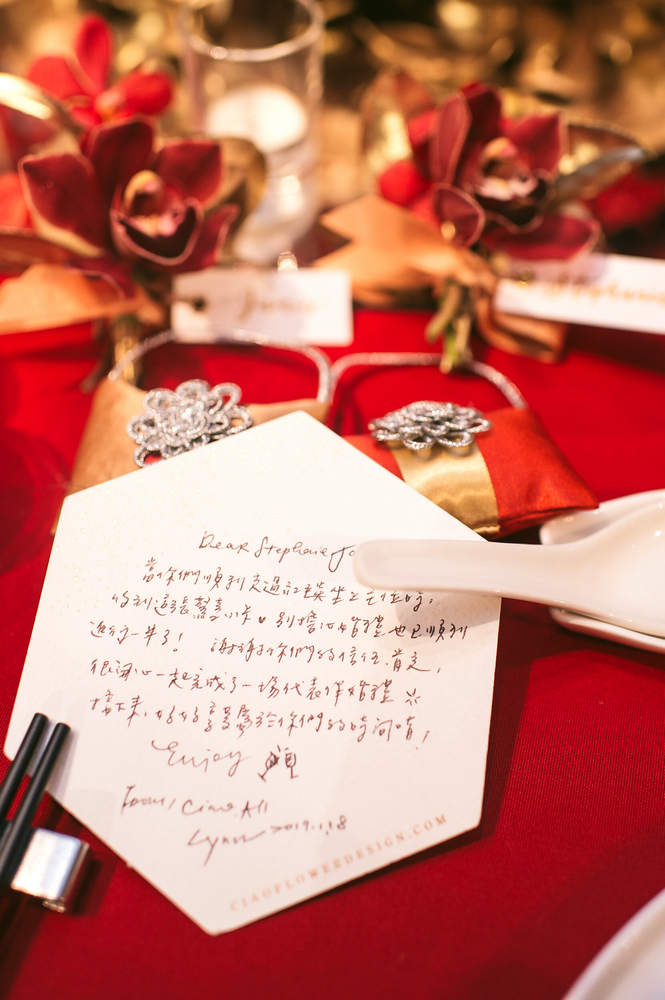 Dear Stephanie Jo
當你們順利走過紅毯坐上主位時,
收到這張驚喜小卡♥別擔心婚禮也已順利
進行一半了! 謝謝你們的信任.肯定,
很開心一起完成了一場代表你婚禮
接下來,好好享受屬於你們的時間唷!
Enjoy
From/ Ciao.All
Lynn 2019.1.18
CIAOFLOWERDESIGN.COM